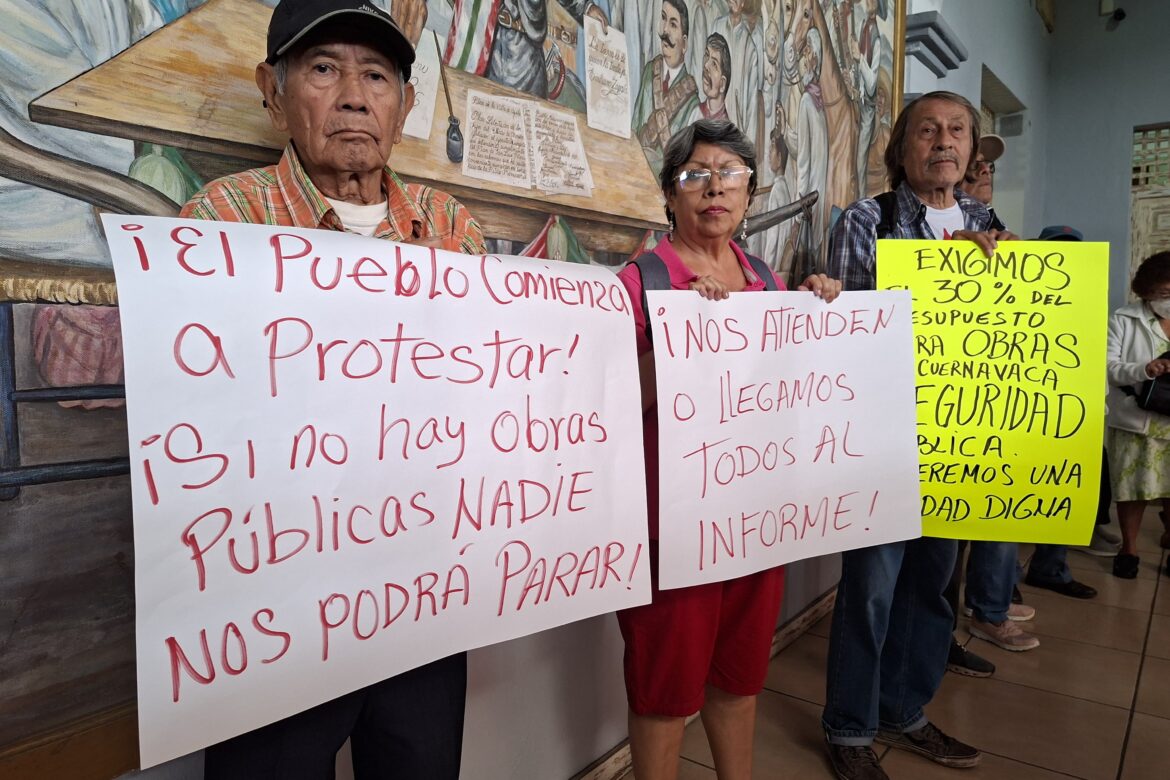 ¡El Pueblo Comienza
a Protestar!
¡Si no hay obras
Públicas NADIE
NOS PODRÁ PARAR!
¡NOS ATIENDEN
O LLEGAMOS
TODOS AL
INFORME!
EXIGIMOS
EL 30% DEL
ESUPUESTO
RA OBRAS
CUERNAVACA
EGURIDAD
BLICA.
EREMOS UNA
DAD DIGNA